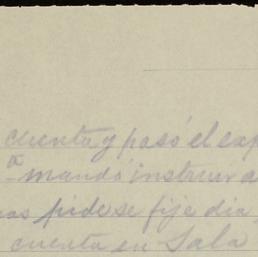 cuenta y pasó el exp
a mandó instruir a
pide se fije dia
cuenta en Sala